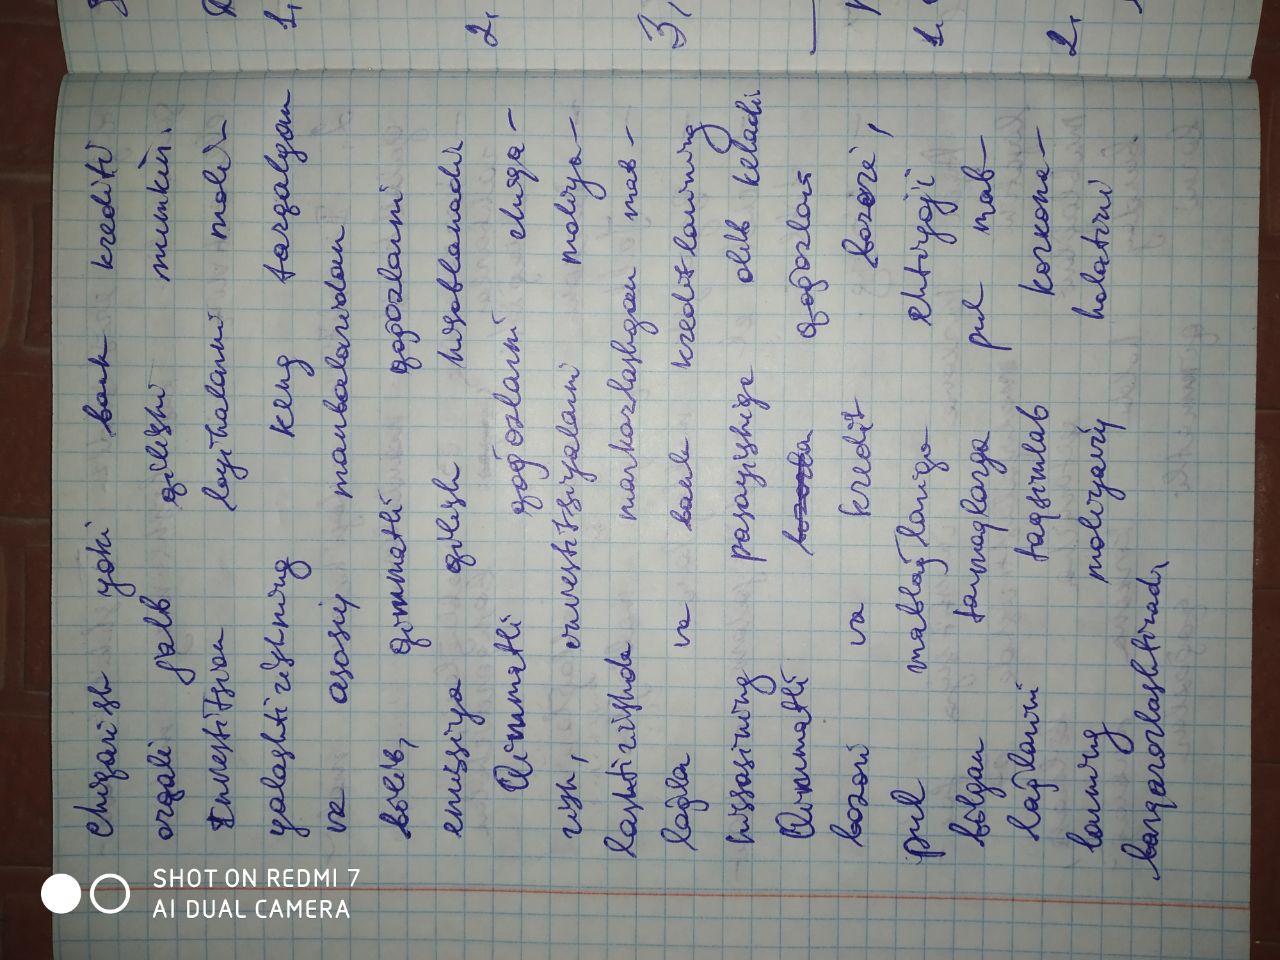 chiqarish yoki bank krediti
orqali jalb qilishi mumkin.
Investitsion loyihalarni moliya
yalashtirishning keng tarqalgan
va asosiy manbalaridan
birib, qimmatli qog'ozlarni
emissiya qilish hisoblanadi.
Qimmatli qog'ozlarni chiqa-
rish, investitsiyalarni moliya-
lashtirishda markazlashgan mab-
lag'lar va bank kreditlarining
hissasining pasayishiga olib keladi
Qimmatli qog'ozlar
bozori va kredit bozori,
pul mablag'lariga ehtiyoji
bo'lgan tarmoqlarga pul mab-
lag'larini taqsimlab korxona-
larning moliyaviy holatini
barqarorlashtiradi.
1.
2.
3.
1.
2.
SHOT ON REDMI 7
AI DUAL CAMERA